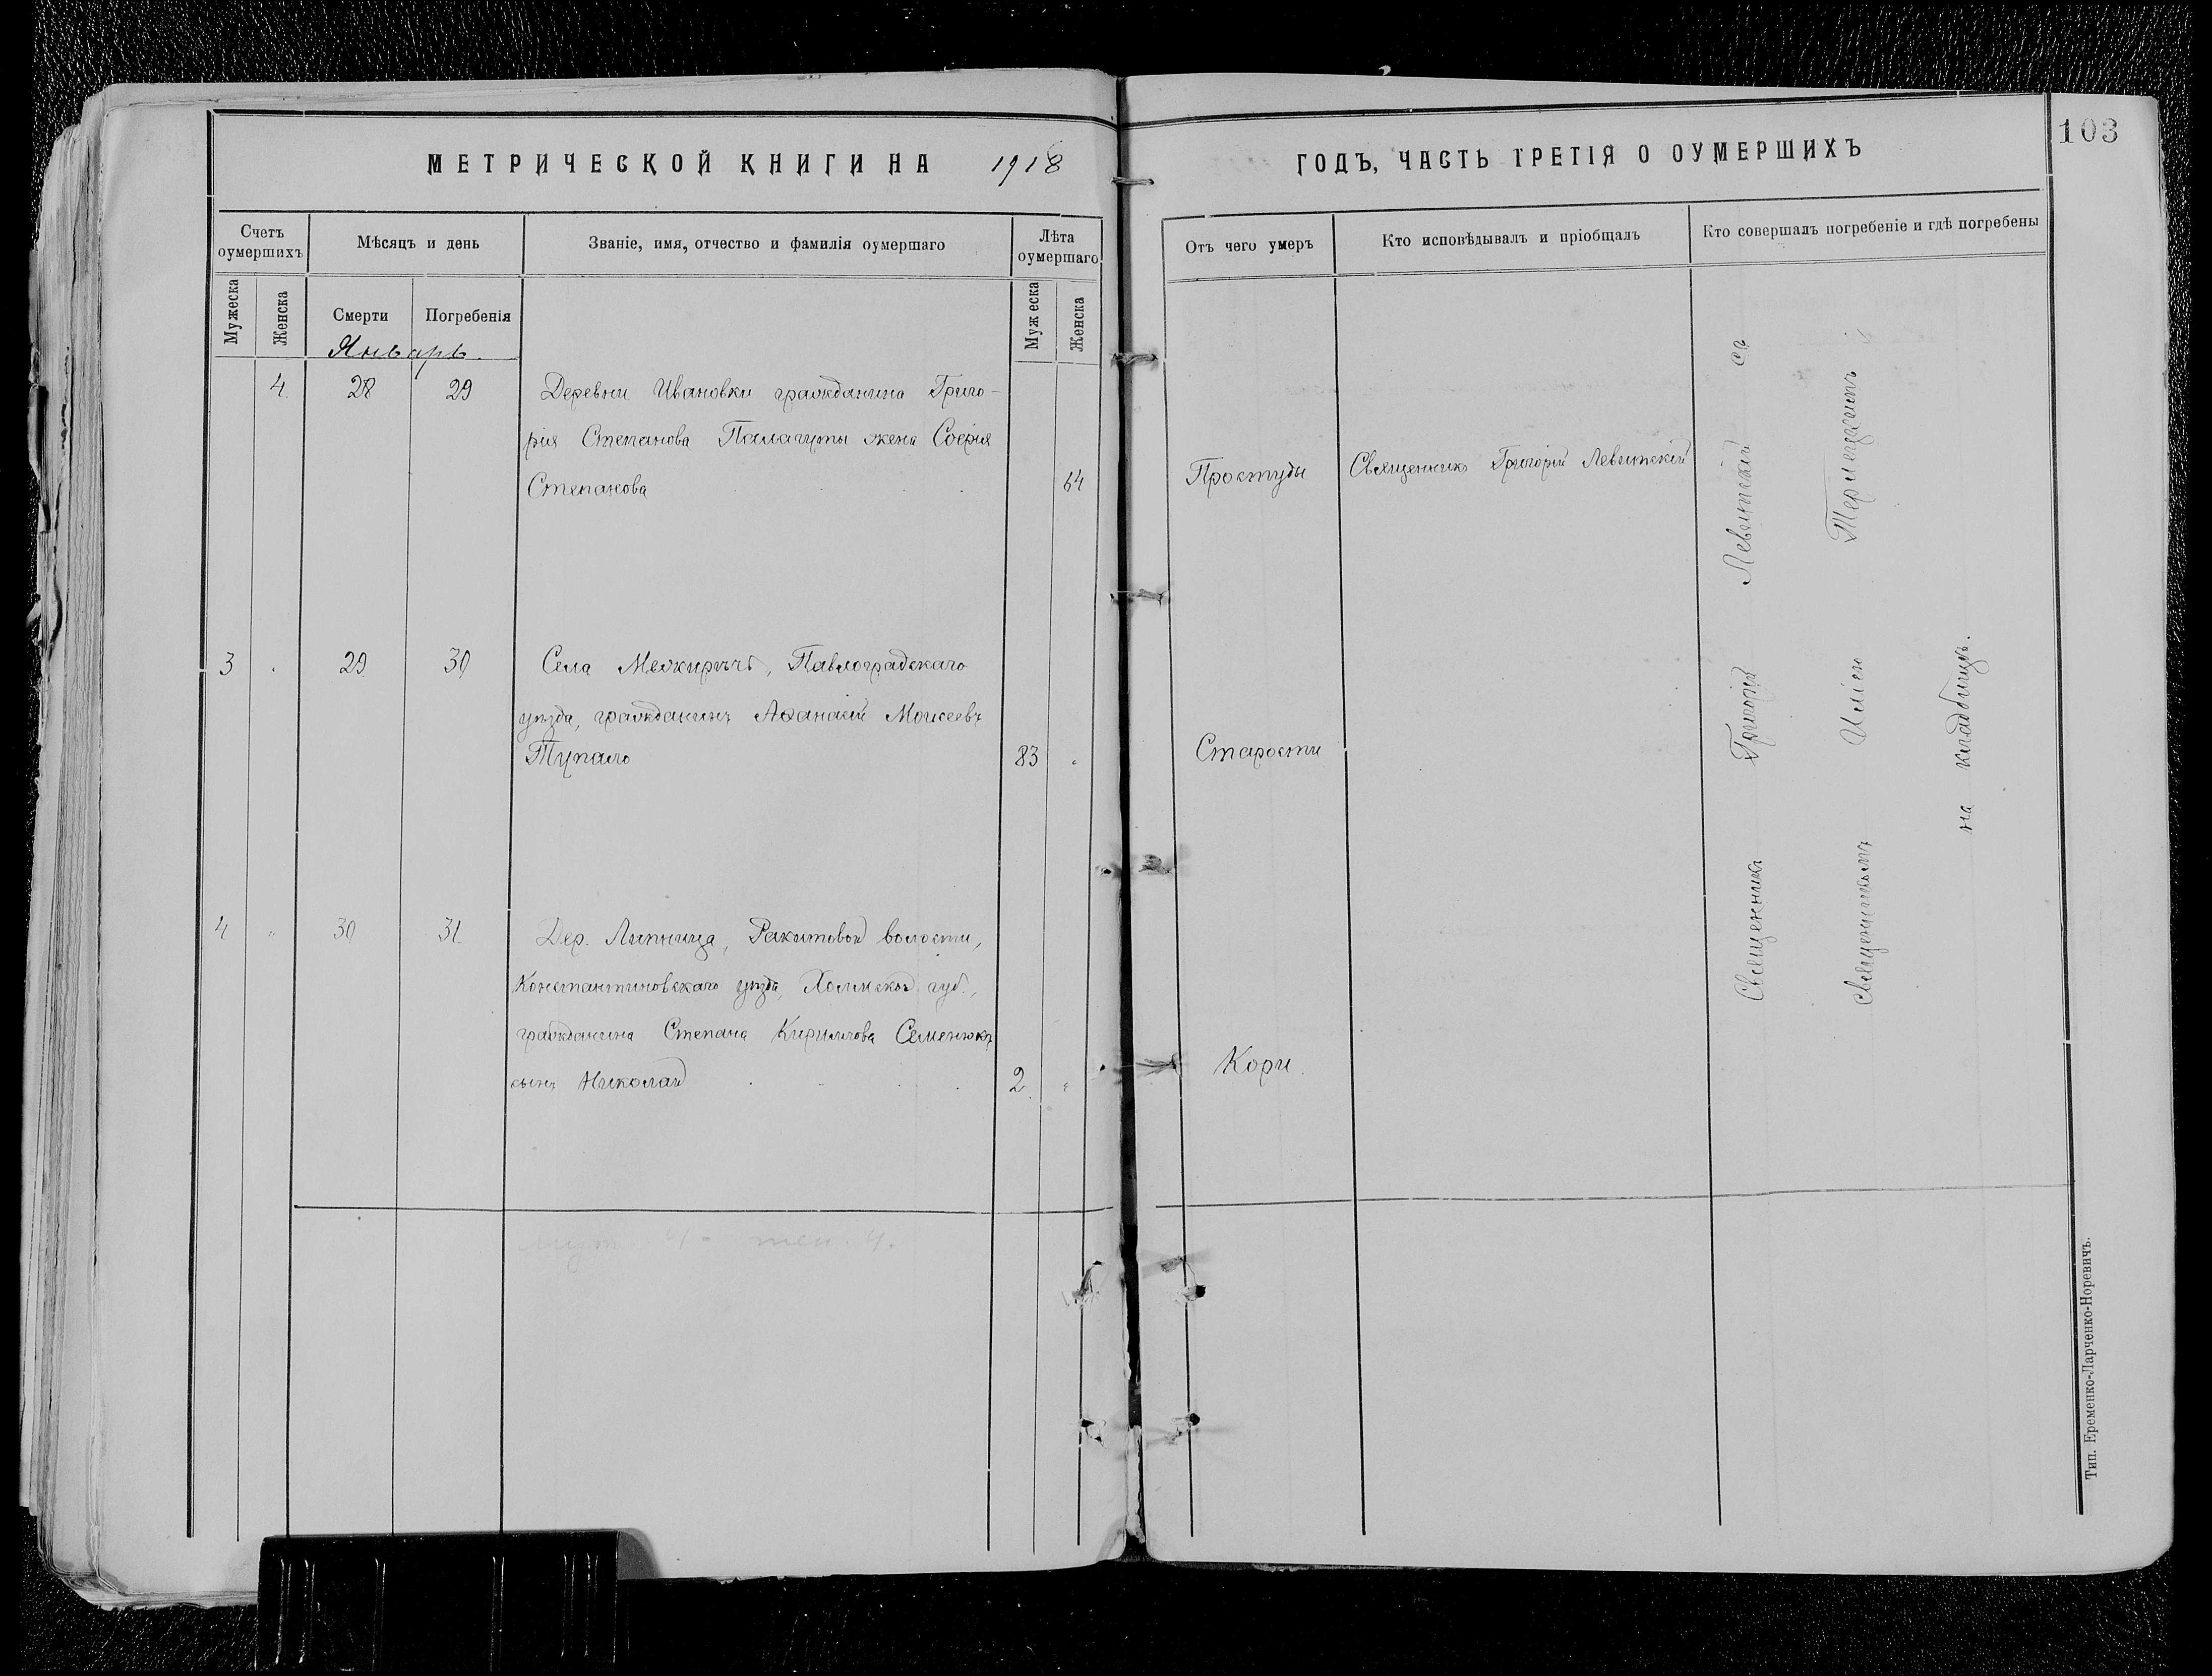 МЕТРИЧЕСКОЙ КНИГИ НА 1918
ГОДЪ, ЧАСТЬ ТРЕТІЯ О ОУМЕРШИХЪ
103
Счетъ оумершихъ
Мѣсяцъ и день
Званіе, имя, отчество и фамилія оумершаго
Лѣта оумершаго
Отъ чего умеръ
Кто исповѣдывалъ и пріобщалъ
Кто совершалъ погребеніе и гдѣ погребены
Мужеска
Женска
Смерти
Погребенія
Мужеска
Женска
Январь.
4. 28 29 Деревни Ивановки гражданина Григо-
рія Степанова Палагуты жена Софія
Степанова 64 Простуды Священникъ Григорій Левитскій
3 29 30 Села Межиричъ, Павлоградскаго
уѣзда, гражданинъ Аѳанасій Моисеевъ
Тупало 83 Старости
4 " 30 31 Дер. Липница, Ракитовой волости,
Константиновскаго уѣзда, Холмской губ.,
гражданина Степана Кириллова Семенюкъ
сынъ Николай 2. " Кори.
Священникъ Григорій Левитскій съ
священникомъ Иліею
на кладбищѣ.
муж 4 - жен. 4.
Тип. Еременко-Ларченко-Норевичъ.